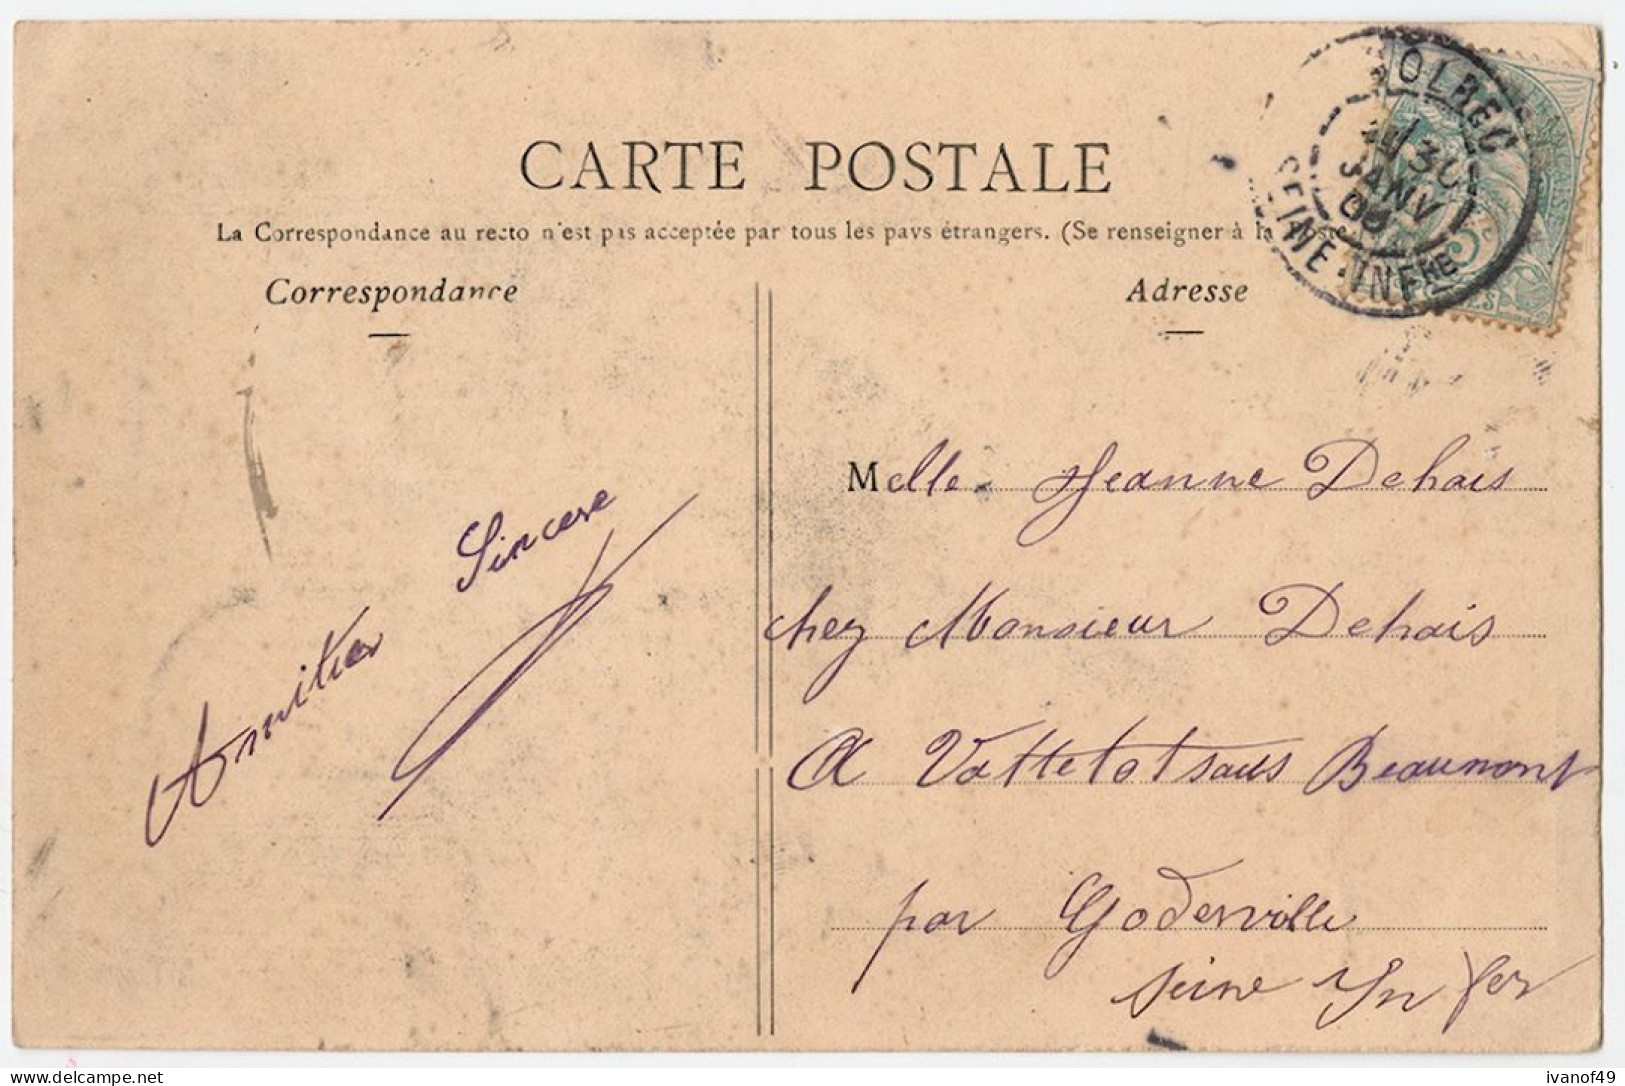 CARTE POSTALE
La Correspondance au recto n'est pas acceptée par tous les pays étrangers. (Se renseigner à la Poste
Correspondance
Adresse
BOLBEC
30
JANV
SEINE-INFRE
5c
Amitiés Sincère
Melle Jeanne Dehais
chez Monsieur Dehais
A Vattetot sous Beaumont
par Goderville
Seine Infer
ivanof49